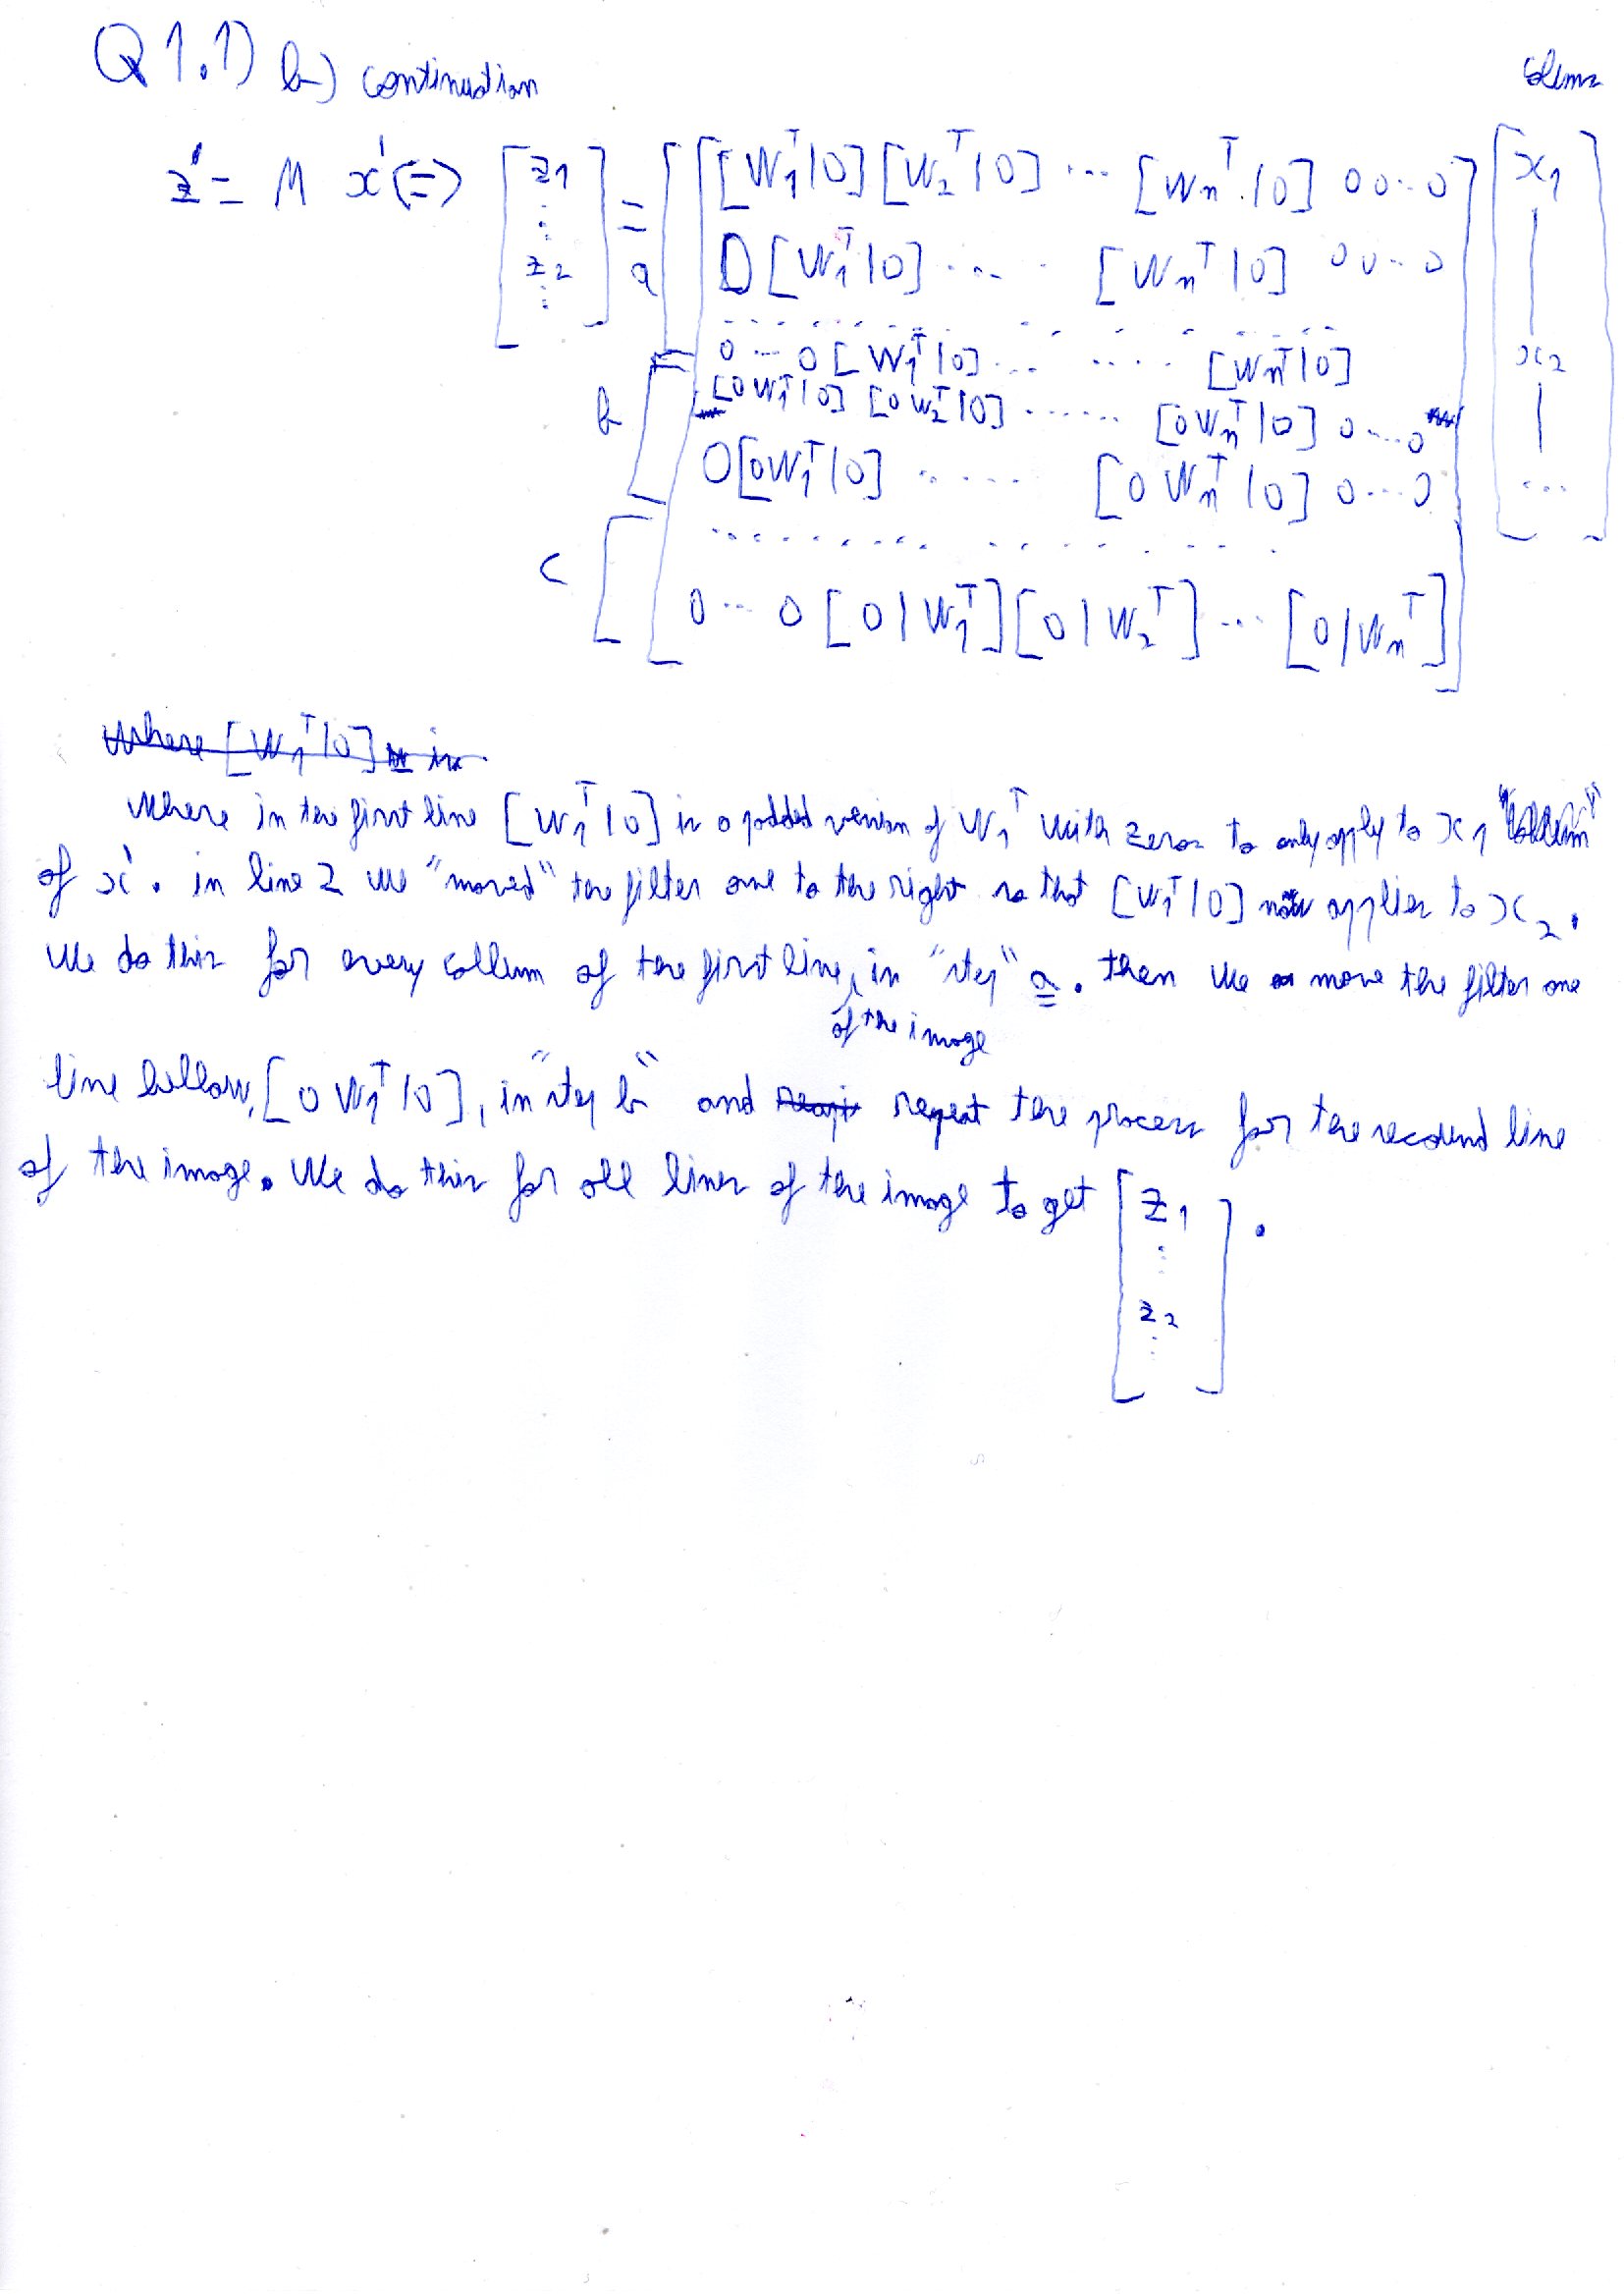 Q 1.1) b) continuation
colums
z' = M x' (=) [ z1 ⋮ z2 ⋮ ] = a [ [W1ᵀ|0] [W2ᵀ|0] ... [Wnᵀ|0] 0 0 ... 0 ] [ x1 | x2 | ... ]
0 [W1ᵀ|0] .... [Wnᵀ|0] 0 0 ... 0
0 ... 0 [W1ᵀ|0] ... .... [Wnᵀ|0]
b [0 W1ᵀ|0] [0 W2ᵀ|0] ...... [0 Wnᵀ|0] 0 .... 0
0 [0 W1ᵀ|0] ..... [0 Wnᵀ|0] 0 ... 0
c
0 ... 0 [0|W1ᵀ] [0|W2ᵀ] ... [0|Wnᵀ]
Where [W1ᵀ|0] is
Where in the first line [W1ᵀ|0] is a padded version of W1ᵀ with zeros to only apply to x1 "collum"
of x'. in line 2 we "moved" the filter one to the right so that [W1ᵀ|0] now applies to x2.
We do this for every collum of the first line, in "step" a. then we move the filter one
of the image
line bellow, [0 W1ᵀ|0], in "step b" and repeat the process for the secound line
of the image. We do this for all lines of the image to get [ z1 ⋮ z2 ⋮ ].